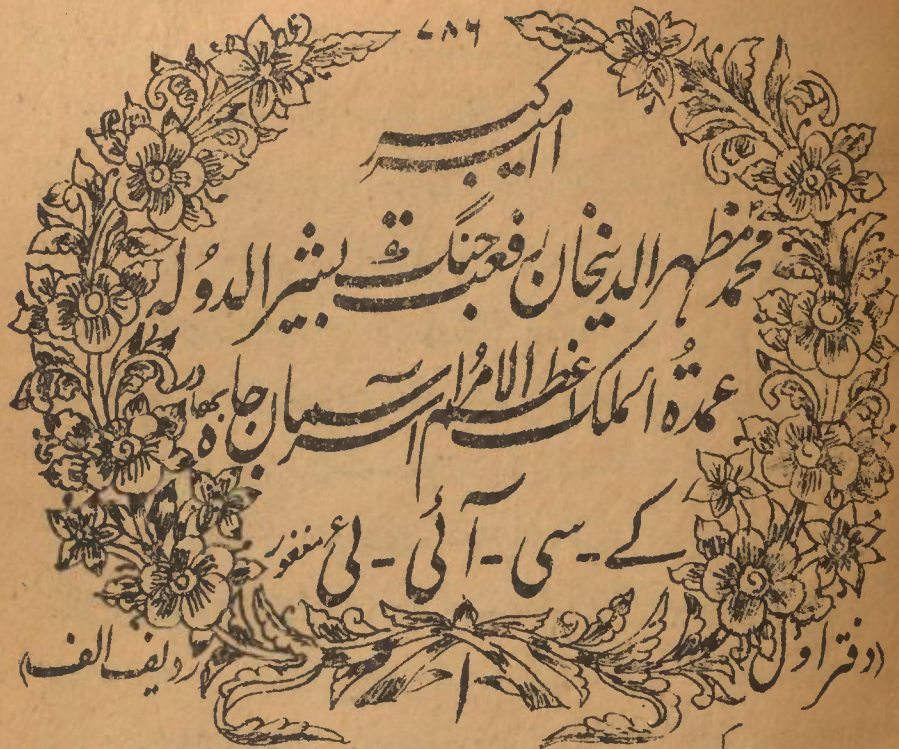 ۷۸۶
امیر کبیر
محمد مظہر الدینخان رفعت جنگ بشیر الدولہ
عمدۃ الملک اعظم الامرا سر آسمان جاہ بہادر
کے - سی - آئی - ای مغفور
(دفتر اول) ۱ (ردیف الف)